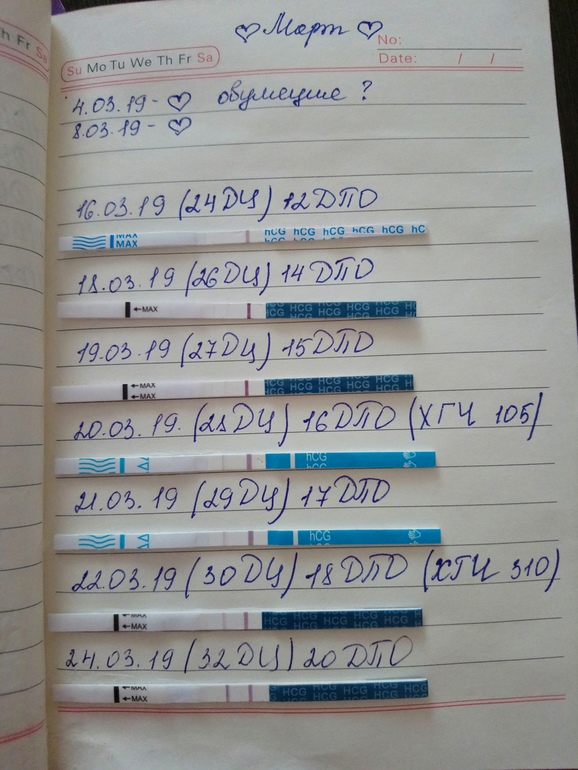 ♡ Март ♡
h Fr Sa
Su Mo Tu We Th Fr Sa
No:
Date: / /
4.03.19 - ♡ овуляция ?
8.03.19 - ♡
16.03.19 (24ДЦ) 12ДПО
MAX
MAX
hCG hCG hCG hCG hCG hC
18.03.19 (26ДЦ) 14ДПО
←MAX
HCG HCG HCG HCG HCG
HCG HCG HCG HCG HCG
19.03.19 (27ДЦ) 15ДПО
←MAX
←MAX
HCG HCG HCG HCG HCG
20.03.19. (28ДЦ) 16ДПО (ХГЧ 105)
hCG
hCG
21.03.19 (29ДЦ) 17ДПО
hCG
22.03.19 (30ДЦ) 18ДПО (ХГЧ 310)
←MAX
HCG HCG HCG HCG HCG
24.03.19 (32ДЦ) 20ДПО
←MAX
←MAX
HCG HCG HCG HCG